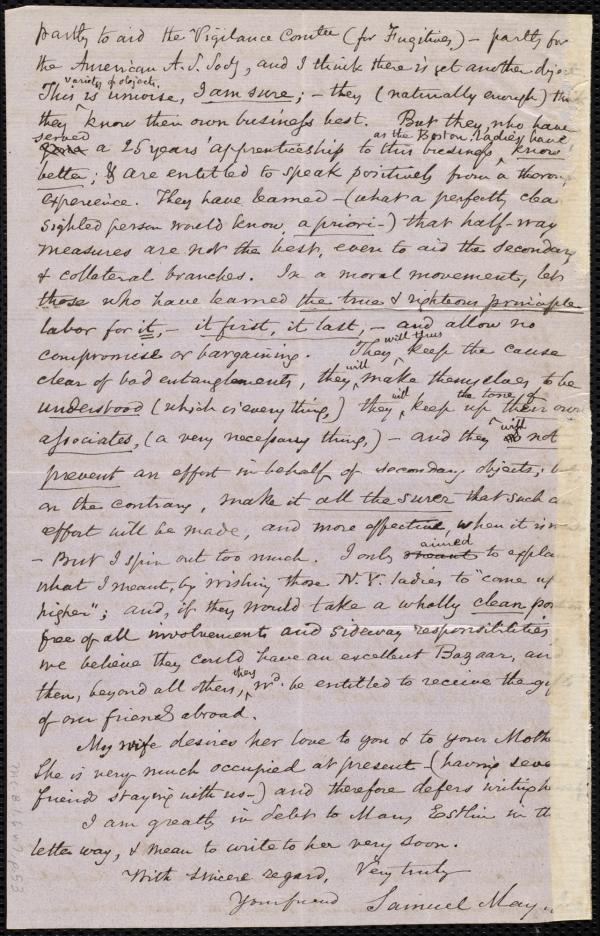 partly to aid the Vigilance Comtee (for Fugitives) — partly for
the American A. S. Socy, and I think there is yet another obje
variety of objects
This is unwise, I am sure; — they (naturally enough) th
they know their own business best. But they, who have
served as the Boston Ladies have
a 25 years' apprenticeship to this business, know
better; & are entitled to speak positively from a thorou
experience. They have learned — (what a perfectly clea
sighted person would know, a priori —) that half-way
measures are not the best, even to aid the secondary
& collateral branches. In a moral movement, let
those who have learned the true & righteous principle
labor for it, — it first, it last, — and allow no
will thus
compromise or bargaining. They keep the cause
will
clear of bad entanglements, they make themselves to be
will the tone of
understood (which is everything,) they keep up their own
will
associates, (a very necessary thing,) — and they not
prevent an effort in behalf of secondary objects; b
on the contrary, make it all the surer that such a
effort will be made, and more effective when it is m
aimed
— But I spin out too much. I only meant to explai
what I meant, by wishing those N.Y. ladies to "come up
higher"; and, if they would take a wholly clean pos
free of all involvements and sideway responsibilities
we believe they could have an excellent Bazaar, an
they
then, beyond all others, wd. be entitled to receive the gif
of our friends abroad.
My wife desires her love to you & to your Mothe
She is very much occupied at present — (having seve
friends staying with us —) and therefore defers writing h
I am greatly in debt to Mary Estlin in th
letter way, & mean to write to her very soon.
With sincere regard, Very truly
Your friend Samuel May